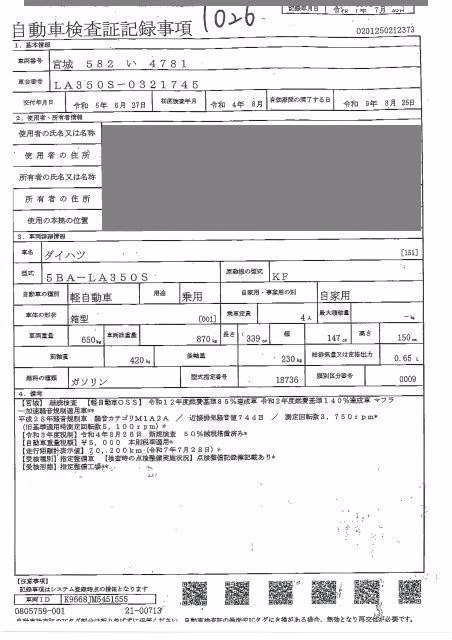 1026
自動車検査証記録事項
0201250212373
1．基本情報
車両番号 宮城 582 い 4781
車台番号 LA350S-0321745
交付年月日 令和 5年 6月 27日 初度検査年月 令和 4年 8月 有効期間の満了する日 令和 9年 8月 25日
2．使用者・所有者情報
使用者の氏名又は名称
使用者の住所
所有者の氏名又は名称
所有者の住所
使用の本拠の位置
3．車両詳細情報
車名 ダイハツ [151]
型式 5BA-LA350S 原動機の型式 KF
自動車の種別 軽自動車 用途 乗用 自家用・事業用の別 自家用
車体の形状 箱型 [001] 乗車定員 4人 最大積載量 -kg
車両重量 650kg 車両総重量 870kg 長さ 339cm 幅 147cm 高さ 150cm
前軸重 420kg 後軸重 230kg 総排気量又は定格出力 0.65 L
燃料の種類 ガソリン 型式指定番号 18736 類別区分番号 0009
4．備考
【宮城】 継続検査 【軽自動車OSS】 令和12年度燃費基準85%達成車 令和2年度燃費基準140%達成車 マフラ
ー加速騒音規制適用車**
平成28年騒音規制車 騒音カテゴリM1A2A ／ 近接排気騒音値74dB ／ 測定回転数3,750rpm*
(旧基準適用時測定回転数5,100rpm)*
[自動車重量税額] ¥5,000 本則税率適用*
[走行距離計表示値] 70,200km (令和7年7月28日)*
【受検種別】指定整備車 【検査時の点検整備実施状況】点検整備記録簿記載あり*
【受検形態】指定整備工場**
【注意事項】
記録事項はシステム登録時点の情報となります
車両ID K9668JM5451555
0805759-001 21-00713